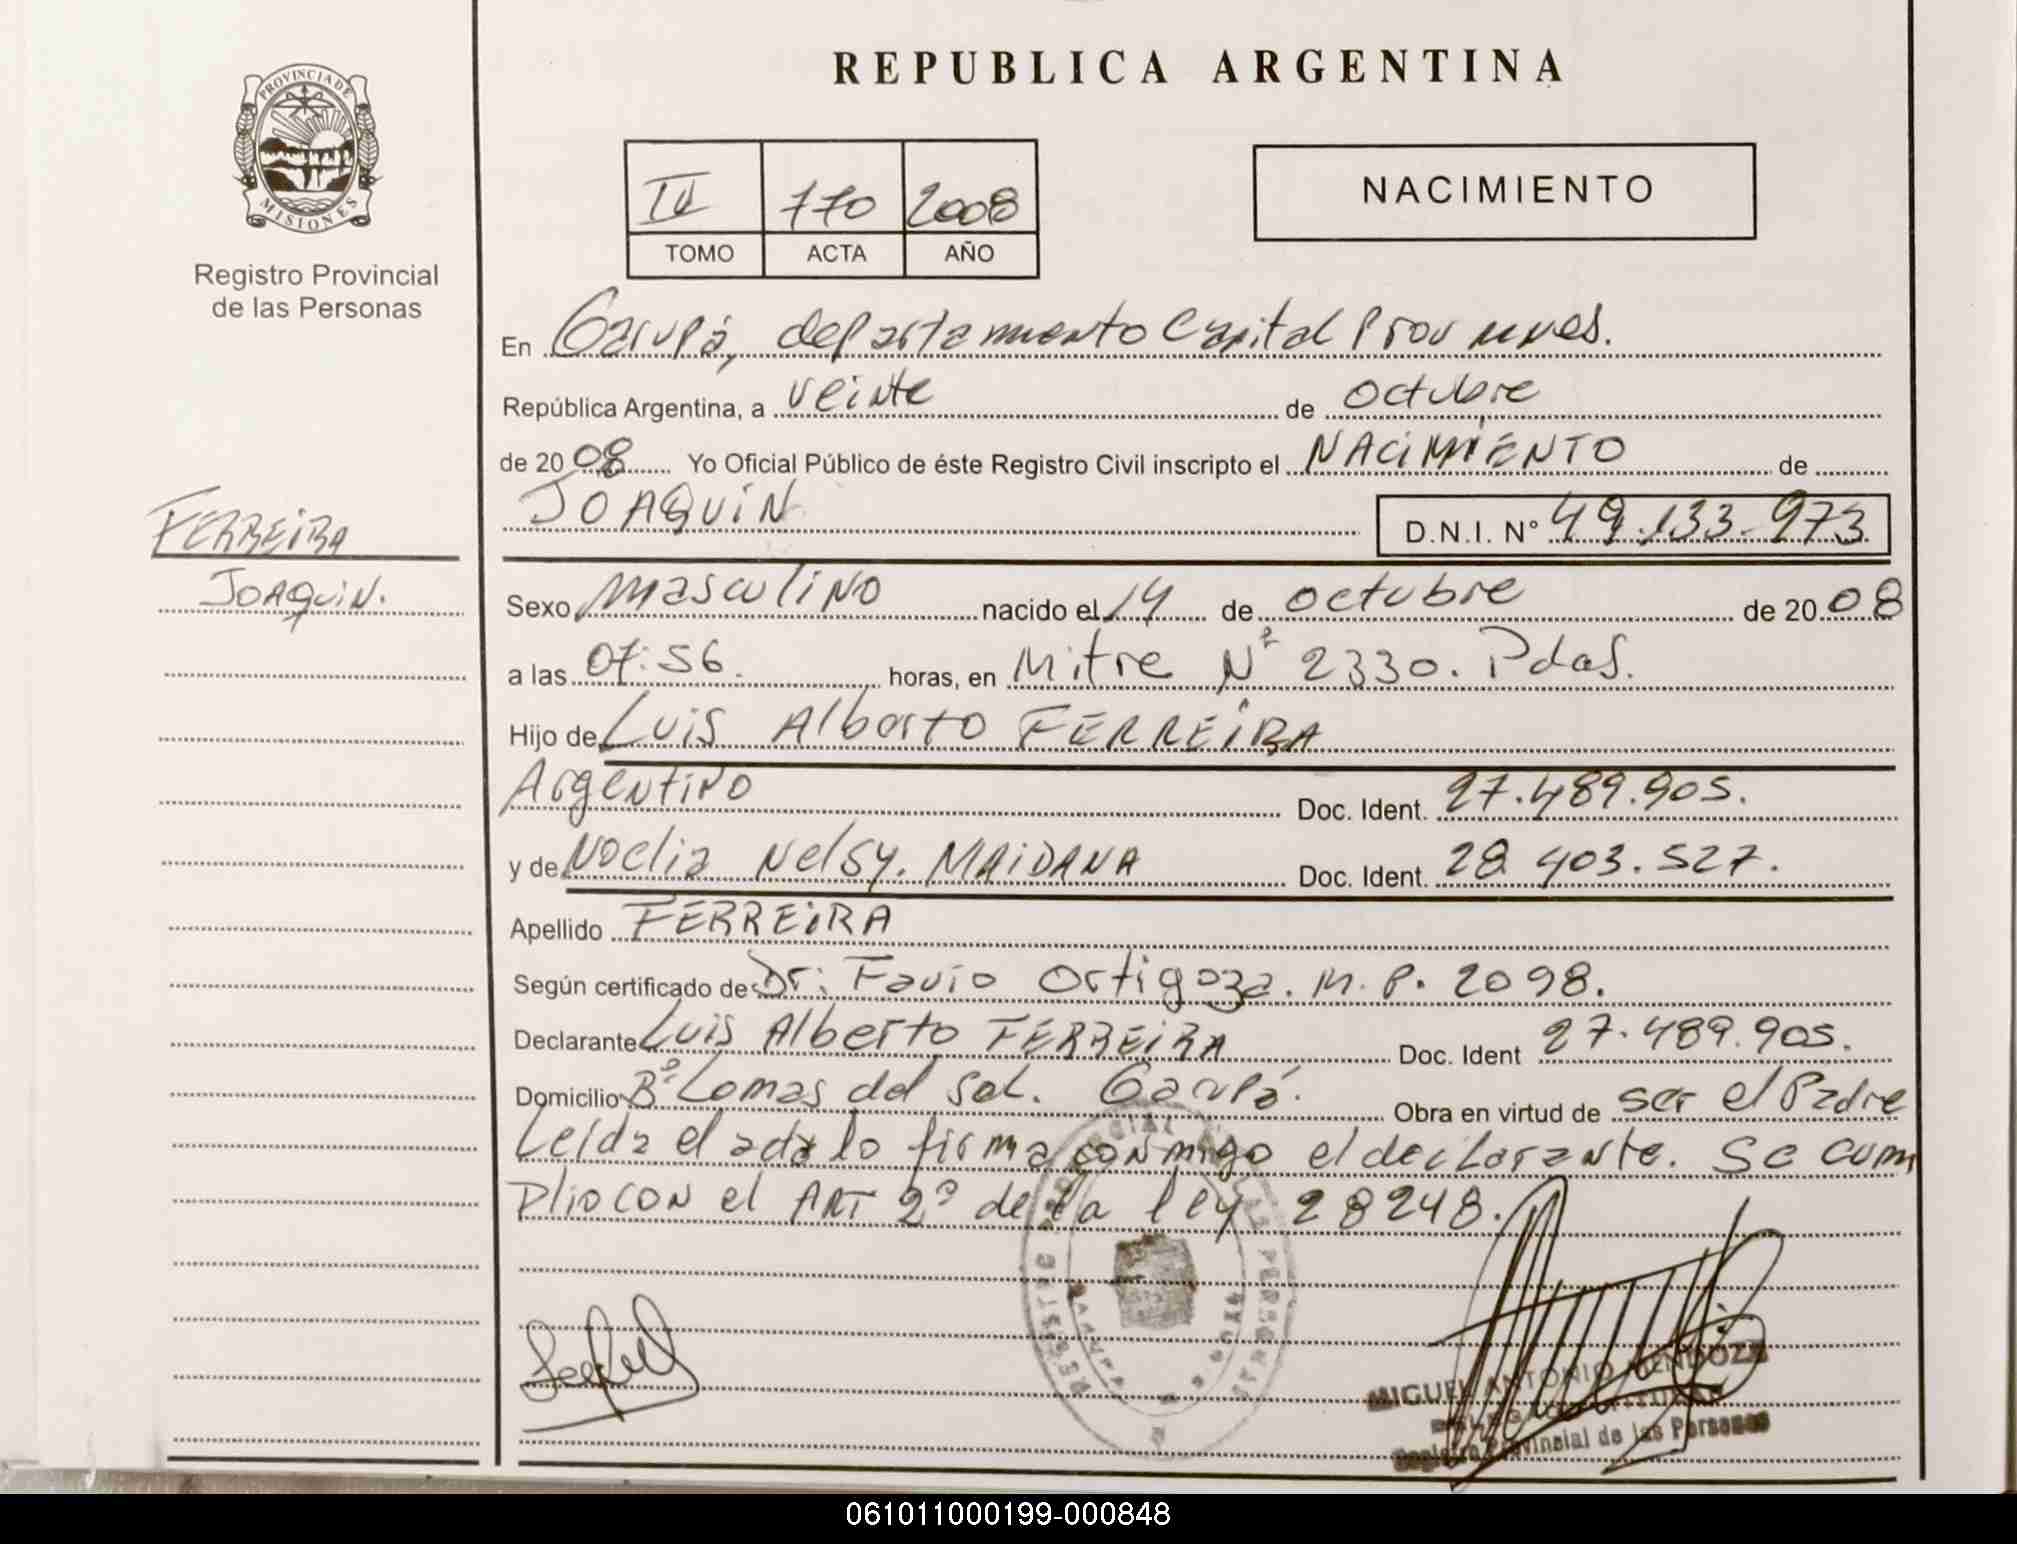 REPUBLICA ARGENTINA
PROVINCIA DE MISIONES
Registro Provincial
de las Personas
IV 770 2008
TOMO ACTA AÑO
NACIMIENTO
En Garupá, departamento Capital Prov
República Argentina, a veinte de octubre
de 2008 Yo Oficial Público de éste Registro Civil inscripto el NACIMIENTO de
JOAQUIN D.N.I. N° 49.133.973
FERREIRA
JOAQUIN.
Sexo masculino nacido el 14 de octubre de 2008
a las 07:56. horas, en Mitre N° 2330. Pdas.
Hijo de Luis Alberto FERREIRA
Argentino Doc. Ident. 27.489.905.
y de Noelia Nelsy. MAIDANA Doc. Ident. 28 403.527.
Apellido FERREIRA
Según certificado de Dr: Favio Ortigoza. M. P. 2098.
Declarante Luis Alberto FERREIRA Doc. Ident 27.489.905.
Domicilio B° Lomas del Sol. Garupá. Obra en virtud de ser el Padre
Leída el acta lo firma conmigo el declarante. Se cum
plio con el ART 2° de la ley 28248.
MIGUEL ANTONIO MENDOZA
Registro Provincial de las Personas
061011000199-000848